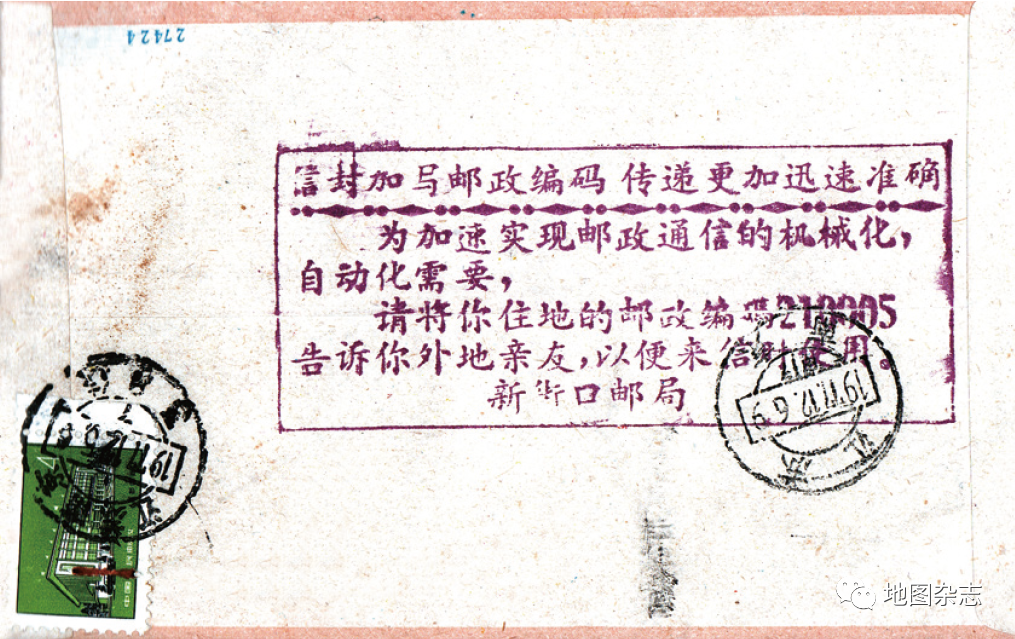 27424
信封加写邮政编码 传递更加迅速准确
为加速实现邮政通信的机械化,
自动化需要,
请将你住地的邮政编码210005
告诉你外地亲友,以便来信时使用。
新街口邮局
地图杂志